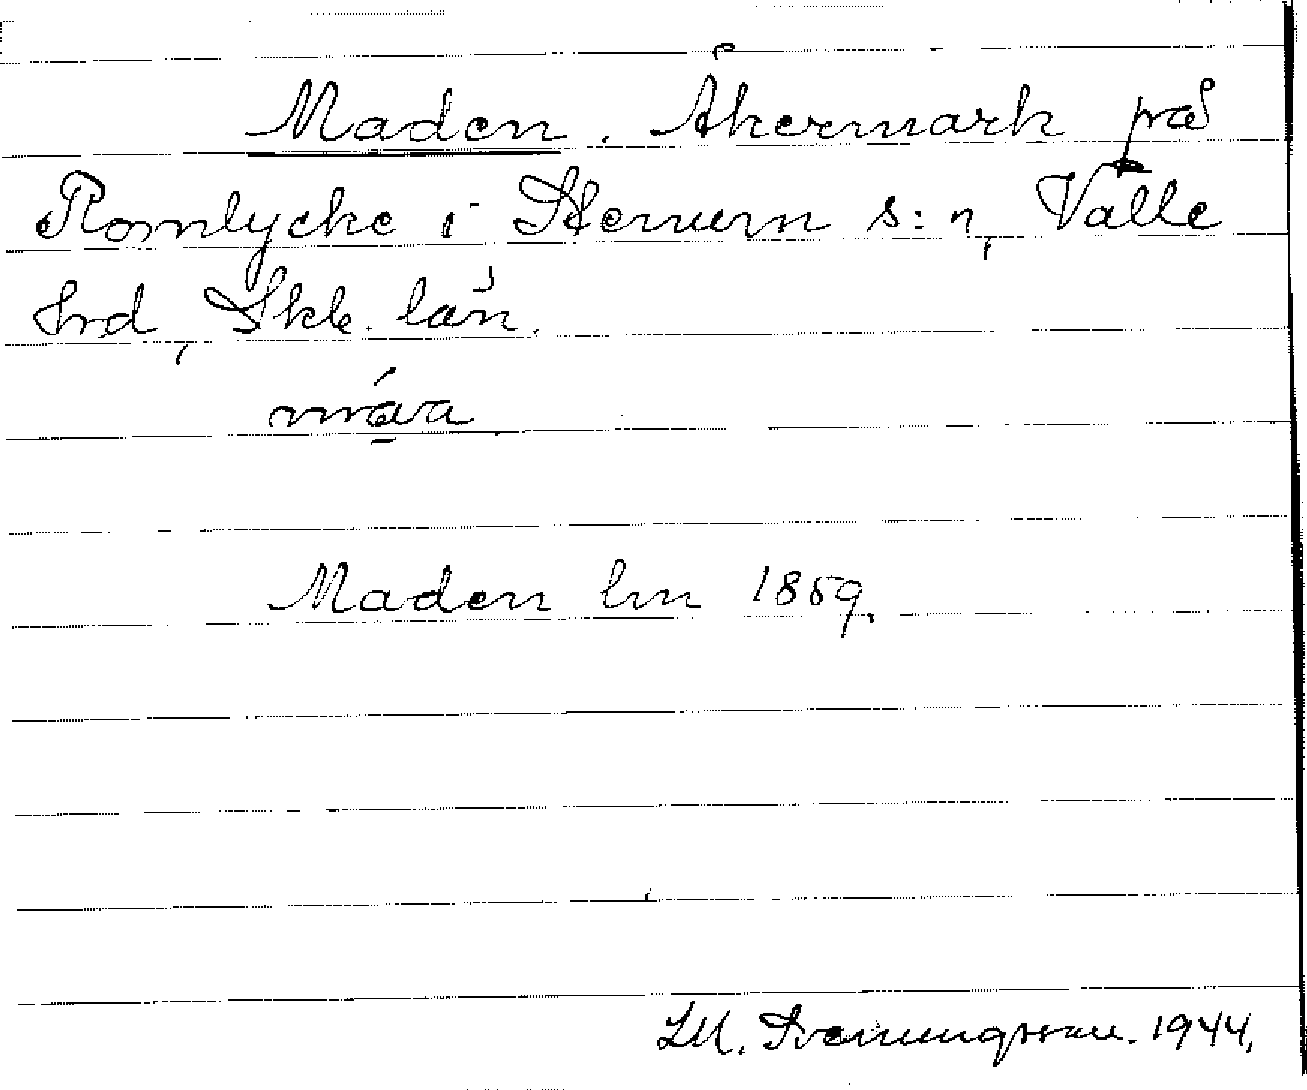 Maden. Åkermark på
Romlycke i Stenum s:n, Valle
hrd, Skb. län.
Maden lm 1859.
LM. Svenungsson. 1944.